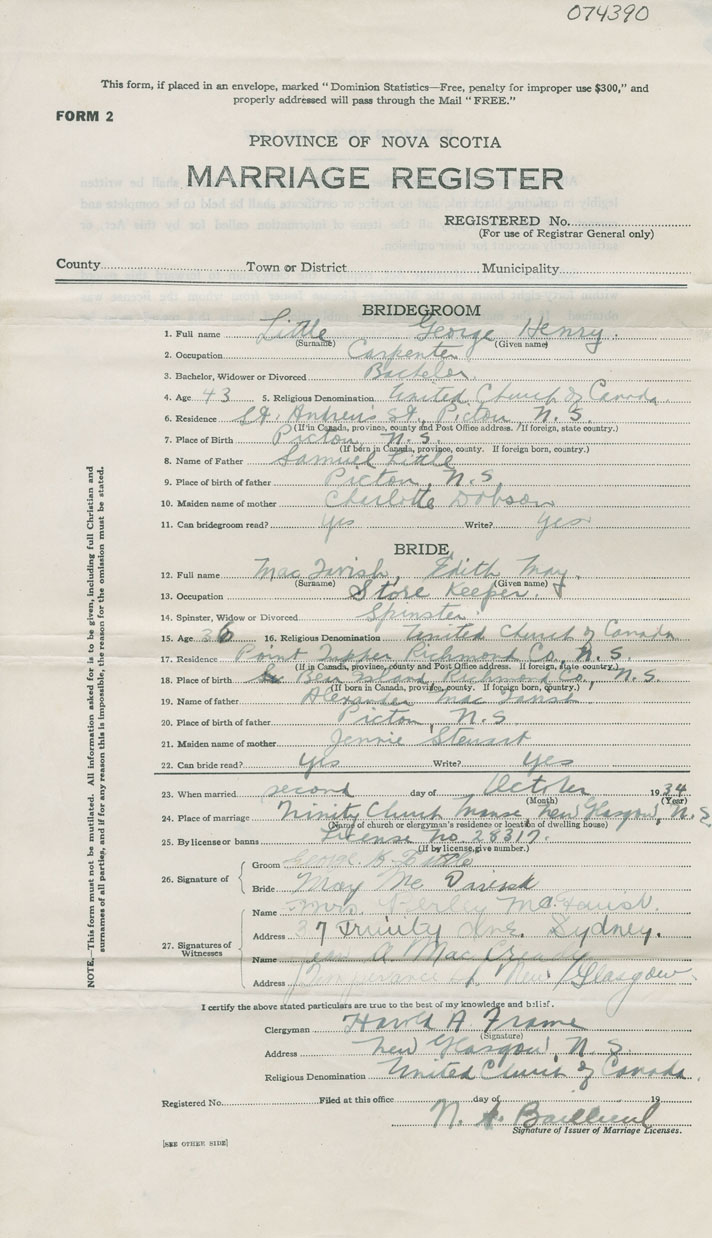 074390
This form, if placed in an envelope, marked "Dominion Statistics—Free, penalty for improper use $300," and
properly addressed will pass through the Mail "FREE."
FORM 2
PROVINCE OF NOVA SCOTIA
MARRIAGE REGISTER
REGISTERED No.
(For use of Registrar General only)
County Town or District Municipality
BRIDEGROOM
1. Full name Little George Henry.
(Surname) (Given name)
2. Occupation Carpenter
3. Bachelor, Widower or Divorced Bachelor
4. Age 43 5. Religious Denomination United Church of Canada.
6. Residence St. Andrew's St., Pictou N. S.
(If in Canada, province, county and Post Office address. If foreign, state country.)
7. Place of Birth Pictou, N. S.
(If born in Canada, province, county. If foreign born, country.)
8. Name of Father Samuel Little
9. Place of birth of father Pictou, N. S.
10. Maiden name of mother Charlotte Dobson
11. Can bridegroom read? Yes Write? Yes
BRIDE
12. Full name MacTavish, Edith May.
(Surname) (Given name)
13. Occupation Store Keeper.
14. Spinster, Widow or Divorced Spinster
15. Age 36 16. Religious Denomination United Church of Canada
17. Residence Point Tupper Richmond Co., N. S.
(If in Canada, province, county and Post Office address. If foreign, state country.)
18. Place of birth Bear Island, Richmond Co., N. S.
(If born in Canada, province, county. If foreign born, country.)
19. Name of father Alexander MacTavish
20. Place of birth of father Pictou, N. S.
21. Maiden name of mother Jennie Stewart
22. Can bride read? Yes Write? Yes
23. When married second day of October 1934
(Month) (Year)
24. Place of marriage Trinity Church Manse, New Glasgow, N. S.
(Name of church or clergyman's residence or location of dwelling house)
25. By license or banns License no. 28317.
(If by license, give number.)
26. Signature of Groom George
Bride May Mc
27. Signatures of Witnesses
Name Mrs.
Address 37 Trinity Ave. Sydney.
Name A. Mac
Address New Glasgow
I certify the above stated particulars are true to the best of my knowledge and belief.
Clergyman Harold A Frame
(Signature)
Address New Glasgow, N. S.
Religious Denomination United Church of Canada.
Registered No. Filed at this office day of 19
N.
Signature of Issuer of Marriage Licenses.
[SEE OTHER SIDE]
NOTE.—This form must not be mutilated. All information asked for is to be given, including full Christian and
surnames of all parties, and if for any reason this is impossible, the reason for the omission must be stated.